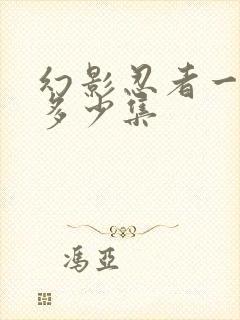 幻影忍者一
多少集
冯亚